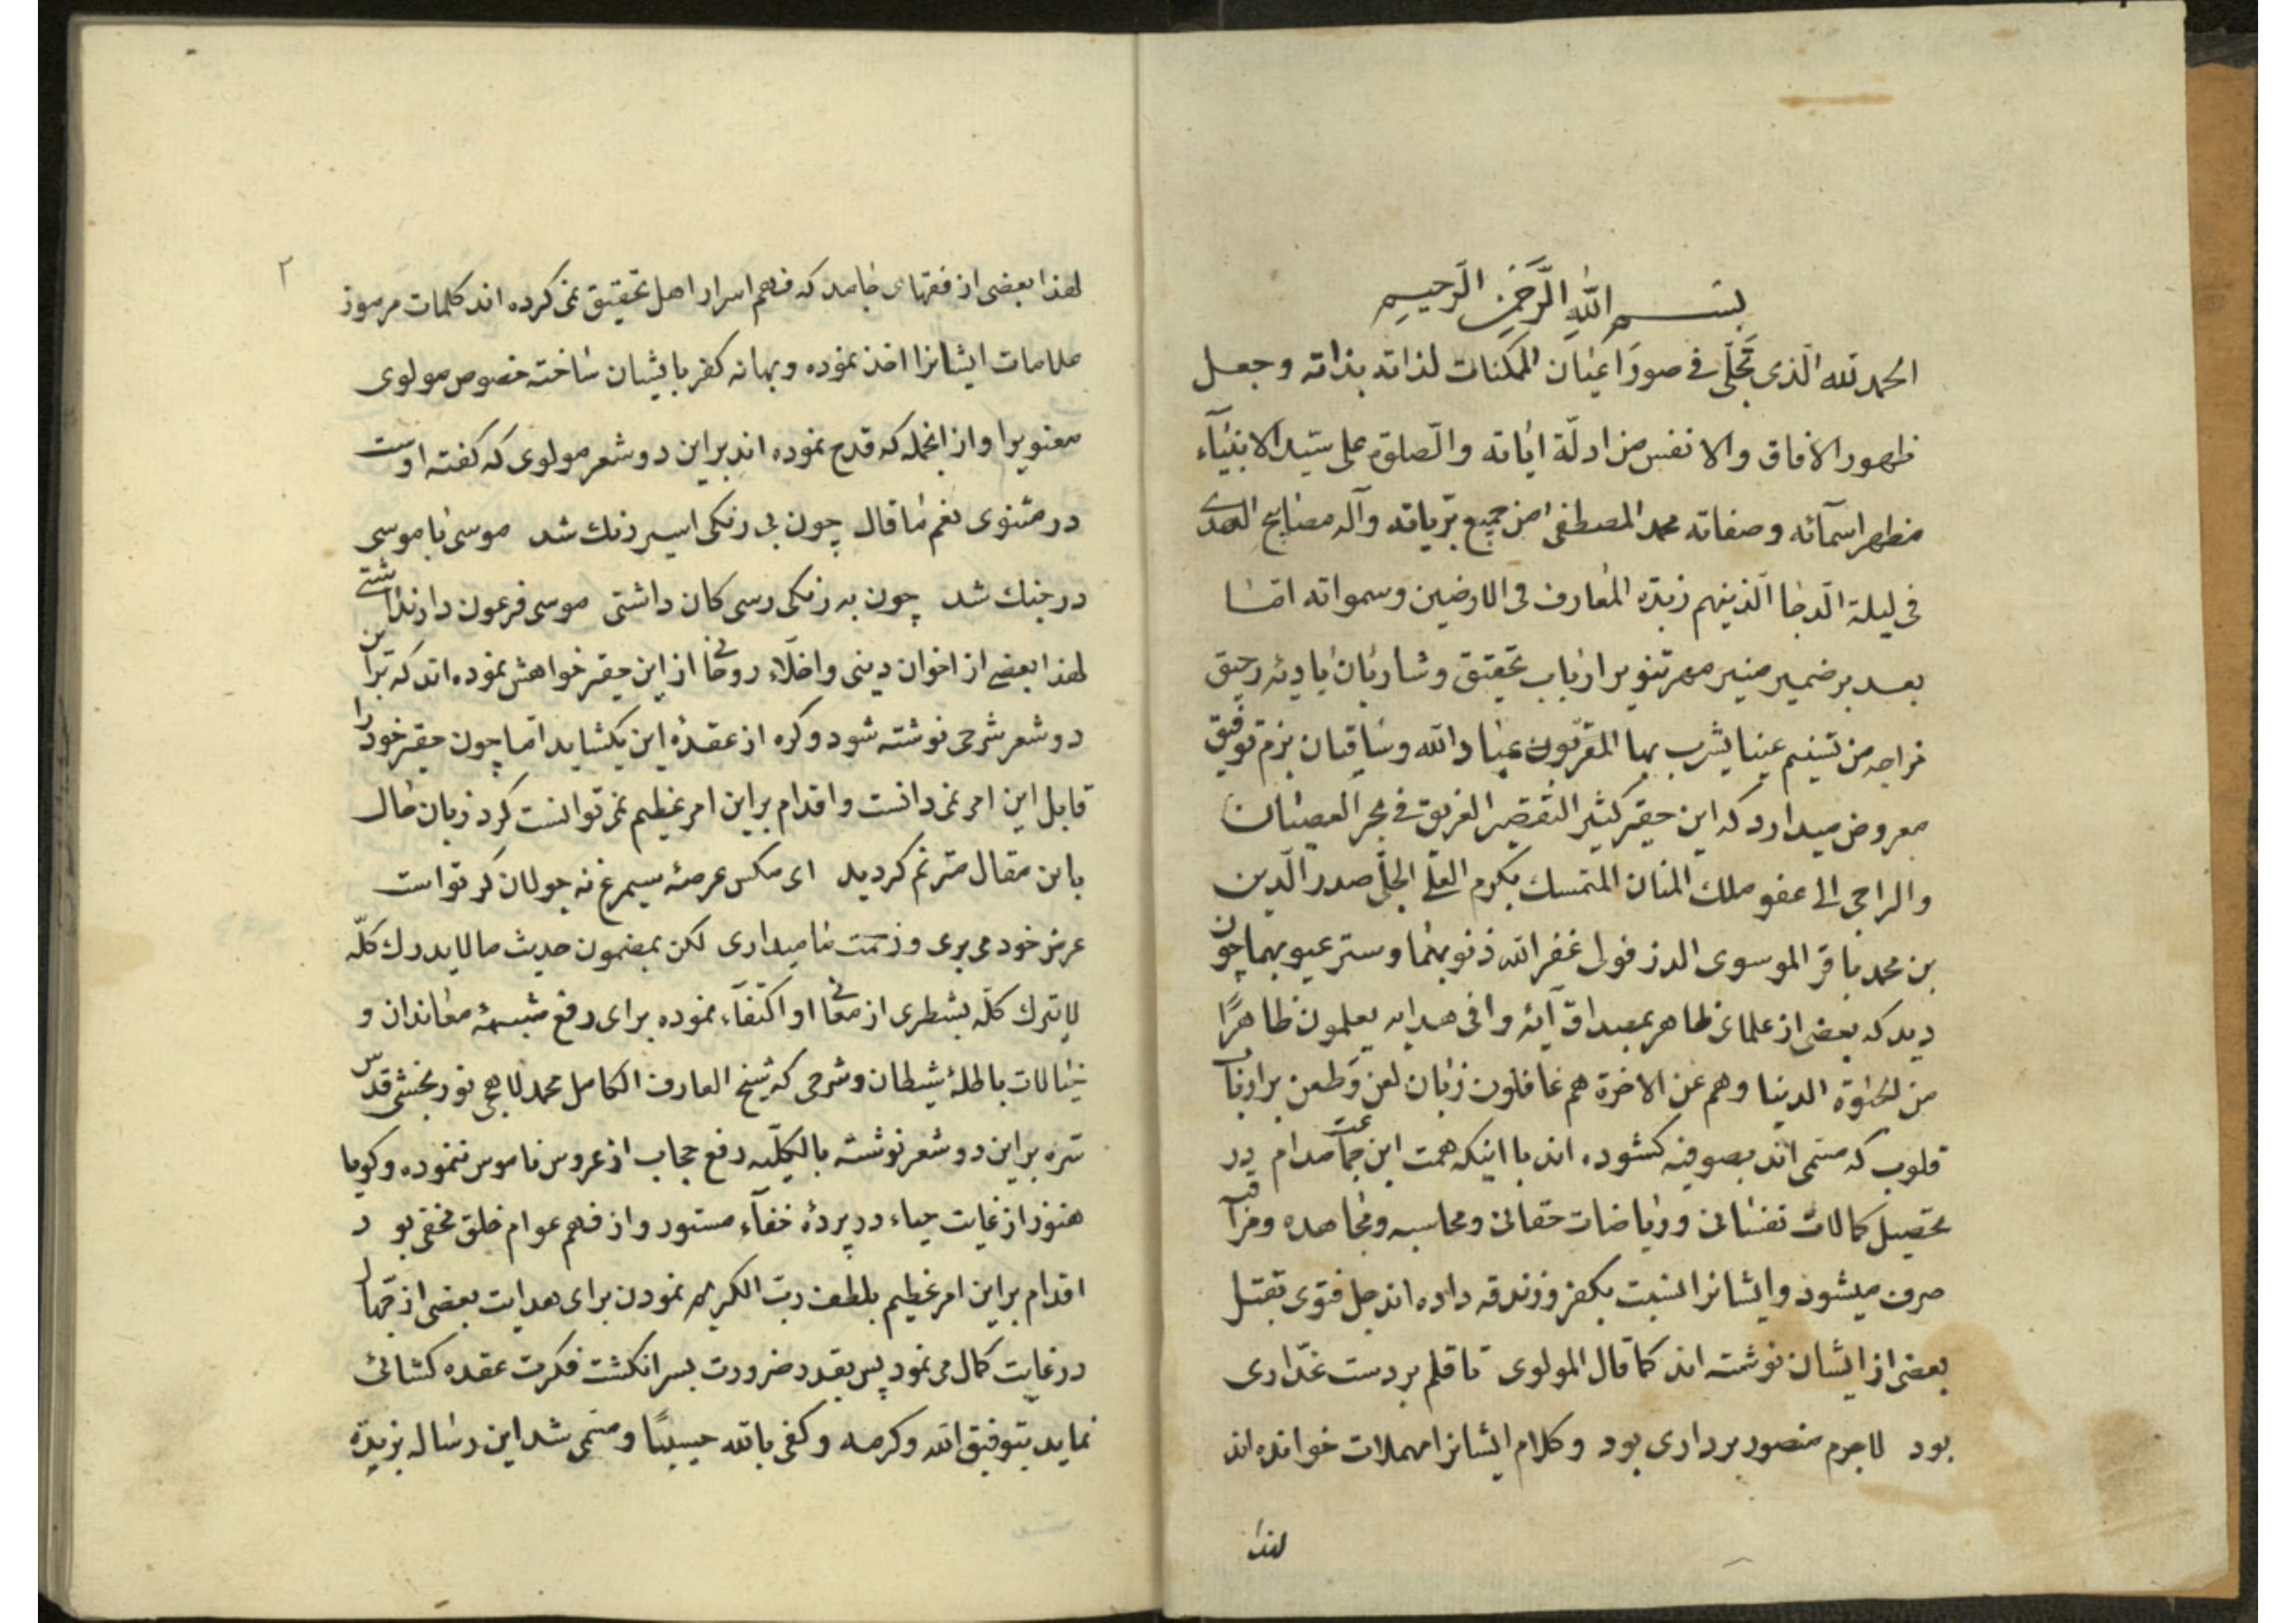 بسم الله الرحمن الرحیم
الحمد لله الّذی تجلّی فی صور اعیان الممکنات لذاته بذاته وجعل
ظهور الافاق والانفس من ادلّة ایاته والصّلوة علی سیّد الانبیآء
مظهر اسمآئه وصفاته محمد المصطفی من جمیع بریاته وآله مصابیح الهدی
فی لیلة الدّجا الّذینهم زبدة المعارف فی الارضین وسمواته امّا
بعد بر ضمیر منیر مهر تنویر ارباب تحقیق وشاربان بادیۀ رحیق
مزاجه من تسنیم عینا یشرب بها المقرّبون عباد الله وساقیان بزم توفیق
معروض میدارد که این حقیر کثیر التقصیر الغریق فی بحر العصیان
والراجی الی عفو ملک المنان المتمسک بکرم العلّی الجلّی صدر الدّین
بن محمد باقر الموسوی الدزفولی غفر الله ذنوبهما وستر عیوبهما چون
دید که بعضی از علمای ظاهر بمصداق آیۀ وافی هدایه یعلمون ظاهرًا
من الحیٰوة الدنیا وهم عن الاخرة هم غافلون زبان لعن وطعن بر ارباب
قلوب که مسمّی اند بصوفیه کشوده اند با اینکه همت این جماعت مدام در
تحصیل کمالات نفسانی وریاضات حقانی ومحاسبه ومجاهده ومراقبه
صرف میشود وایشانرا نسبت بکفر وزندقه داده اند بل فتوی بقتل
بعضی از ایشان نوشته اند کما قال المولوی تا قلم بر دست غدّاری
بود لاجرم منصور بر داری بود وکلام ایشانرا مهملات خوانده اند
لهذا
۲
لهذا بعضی از فقهای جامد که فهم اسرار اهل تحقیق نمی کرده اند کلمات مرموز
ملامات ایشانرا اخذ نموده وبهانه کفر بایشان ساخته خصوص مولوی
معنویرا واز انجمله که قدح نموده اند بر این دو شعر مولوی که کفته اوست
در مثنوی نعم ما قال چون بی رنکی اسیر رنک شد موسی با موسی
در جنک شد چون به رنکی رسی کان داشتی موسی فرعون دارند اشتی
لهذا بعضی از اخوان دینی واخلّاء روحانی از این حقیر خواهش نموده اند که براین
دو شعر شرحی نوشته شود وکره از عقدۀ این بکشاید امّا چون حقیر خود را
قابل این امر نمی دانست واقدام براین امر عظیم نمی توانست کرد زبان حال
باین مقال مترنم کردید ای مکس عرصۀ سیمرغ نه جولان کر تواست
عرض خود می بری وزحمت ما میداری لکن بمضمون حدیث ما لا یدرک کلّه
لا یترک کلّه بشطری از معانی او اکتفآء نموده برای رفع شبهۀ معاندان و
خیالات باطلۀ شیطان وشرحی که شیخ العارف الکامل محمد لاهجی نوربخشی قدّس
سرّه براین دو شعر نوشته بالکلّیه رفع حجاب از عروس ناموس ننموده وکویا
هنوز از غایت حیاء در پردۀ خفآء مستور واز فهم عوام خلق مخفی بود
اقدام براین امر عظیم بلطف ربّ الکریم نمودن برای هدایت بعضی از جهّال
در غایت کمال می نمود پس بقدر ضرورت بسر انکشت فکرت عقده کشائی
نماید بتوفیق الله وکرمه وکفی بالله حسیبًا ومسمّی شد این رساله بزبدة